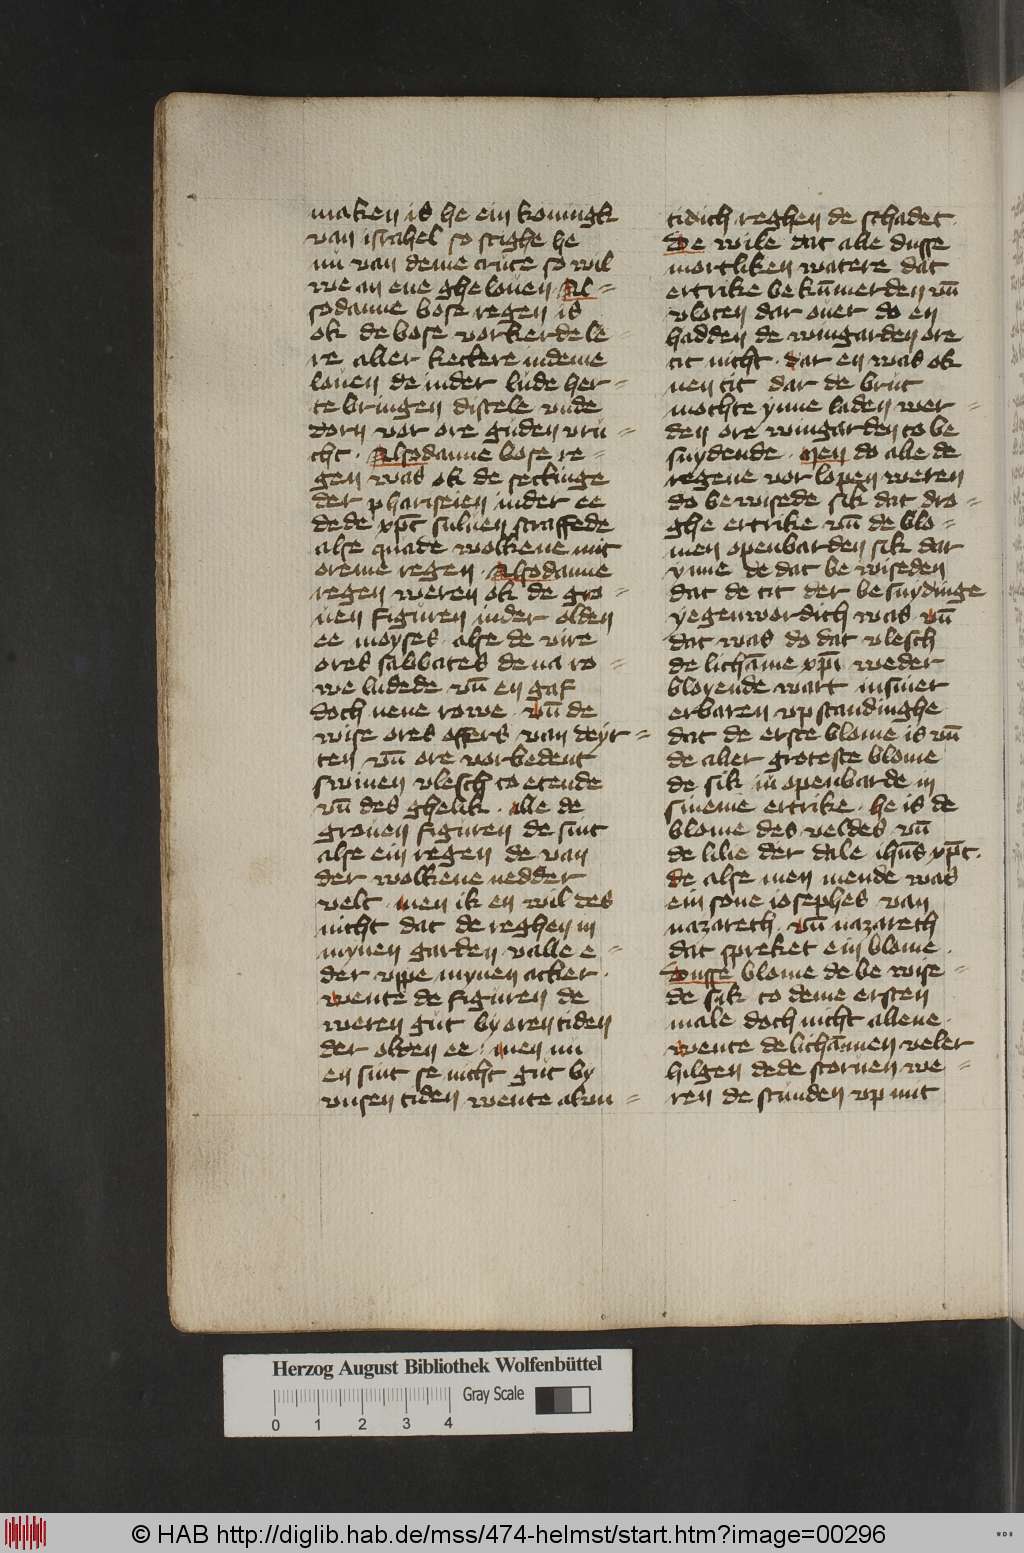 maken is he ein koningk
van israhel so stighe he
nu van deme cruce so wil
we an ene ghelouen Al=
sodanne bose regen is
ok de bose vorkerde le=
re aller kettere in deme
louen de in der lude her=
te bringen distele vnde
dorn vor ore guden vru=
cht · Alsodanne bose re=
gen was ok de seckinge
der phariseien in der ee
dede xp̄c suluen straffede
alse quade wolkene mit
oreme regen · Alsodanne
regen weren ok de gro=
uen figuren in der olden
ee moyses · alse de vire
ores sabbates de na ro=
we ludede vn̄ en gaf
doch nene rowe · vn̄ de
wise ores offers van deyr=
ten vn̄ ore vorbedent
swinen vlesch to etende
vn̄ des ghelik · alle de
grouen figuren de sint
alse ein regen de van
der wolkene nedder
velt · men ik en wil des
nicht dat de reghen in
mynen garden valle e=
der vppe mynen acker ·
wente de figuren de
weren gut by oren tiden
der olden ee · men nu
en sint se nicht gut by
vnsen tiden wente alvn=
tidich reghen de schadet ·
De wile dat alle dusse
mortliken watere dat
ertrike bekūmerden vn̄
vloten dar ouer do en
hadden de wingarden ore
tit nicht · dar en was ok
nen tit dar de brut
mochte ynne laden wer=
den ore wingarden to be
snydende · Men do alle de
regene vorlopen weren
do bewisede sik dat dro=
ghe ertrike vn̄ de blo=
men openbarden sik dar
ynne de dat bewiseden
dat de tit der besnydinge
yegenwordich was · vn̄
dat was do dat vlesch
de lichāme xp̄i weder
bloyende wart in siner
erbaren vpstandinghe
dat de erste blome is vn̄
de aller groteste blome
de sik in openbarde in
sineme ertrike · he is de
blome des veldes vn̄
de lilie der dale ihūs xp̄c ·
de alse men mende was
ein sone iosephes van
nazareth · vn̄ nazareth
dat spreket ein blome ·
Dusse blome de bewise=
de sik to deme ersten
male doch nicht allene ·
wente de lichāmen veler
hilgen dede storuen we=
ren de stunden vp mit
Herzog August Bibliothek Wolfenbüttel
0 1 2 3 4
Gray Scale
© HAB http://diglib.hab.de/mss/474-helmst/start.htm?image=00296